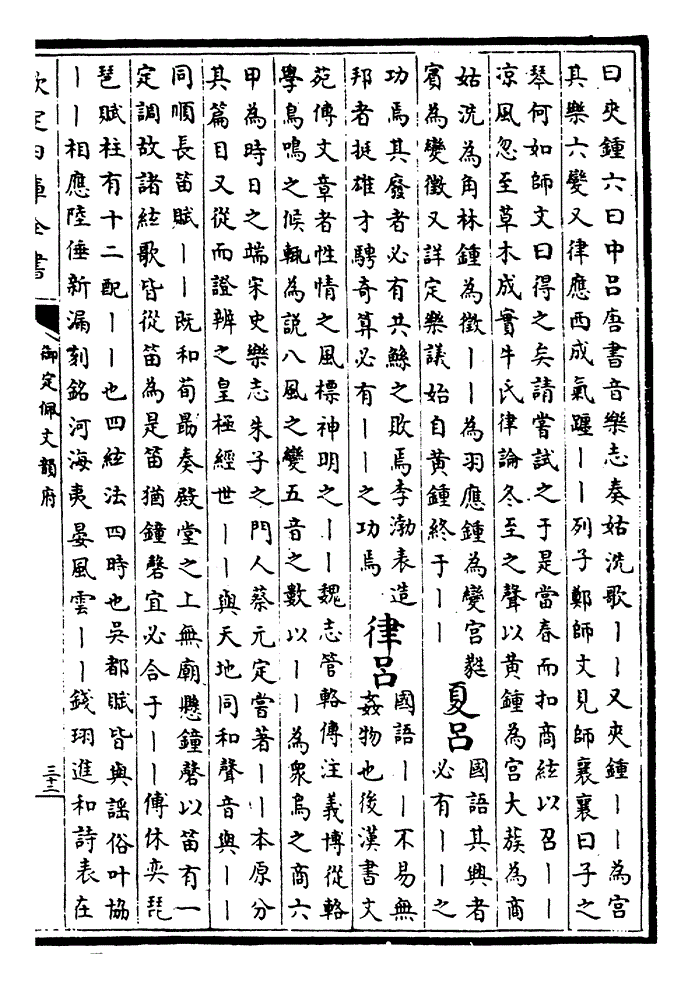 曰夾鍾六曰中呂唐書音樂志奏姑洗歌丨丨又夾鍾丨丨為宮
其樂六變又律應西成氣躔丨丨列子鄭師文見師襄襄曰子之
琴何如師文曰得之矣請嘗試之于是當春而扣商絃以召丨丨
凉風忽至草木成實牛氏律論冬至之聲以黄鍾為宮大蔟為商
姑洗為角林鍾為徵丨丨為羽應鍾為變宮蕤
賓為變徵又詳定樂議始自黄鍾終于丨丨
夏呂
國語其興者
必有丨丨之
功焉其廢者必有共鯀之敗焉李渤表造
邦者挺雄才騁奇算必有丨丨之功焉
律呂
國語丨丨不易無
姦物也後漢書文
苑傳文章者性情之風標神明之丨丨魏志管輅傳注義博從輅
學鳥鳴之候輒為説八風之變五音之數以丨丨為衆鳥之商六
甲為時日之端宋史樂志朱子之門人蔡元定嘗著丨丨本原分
其篇目又從而證辨之皇極經世丨丨與天地同和聲音與丨丨
同順長笛賦丨丨既和荀勗奏殿堂之上無廟懸鐘磬以笛有一
定調故諸絃歌皆從笛為是笛猶鐘磬宜必合于丨丨傅休奕琵
琶賦柱有十二配丨丨也四絃法四時也吳都賦皆與謡俗叶協
丨丨相應陸倕新漏刻銘河海夷晏風雲丨丨錢珝進和詩表在
欽定四庫全書
御定佩文韻府
三十三